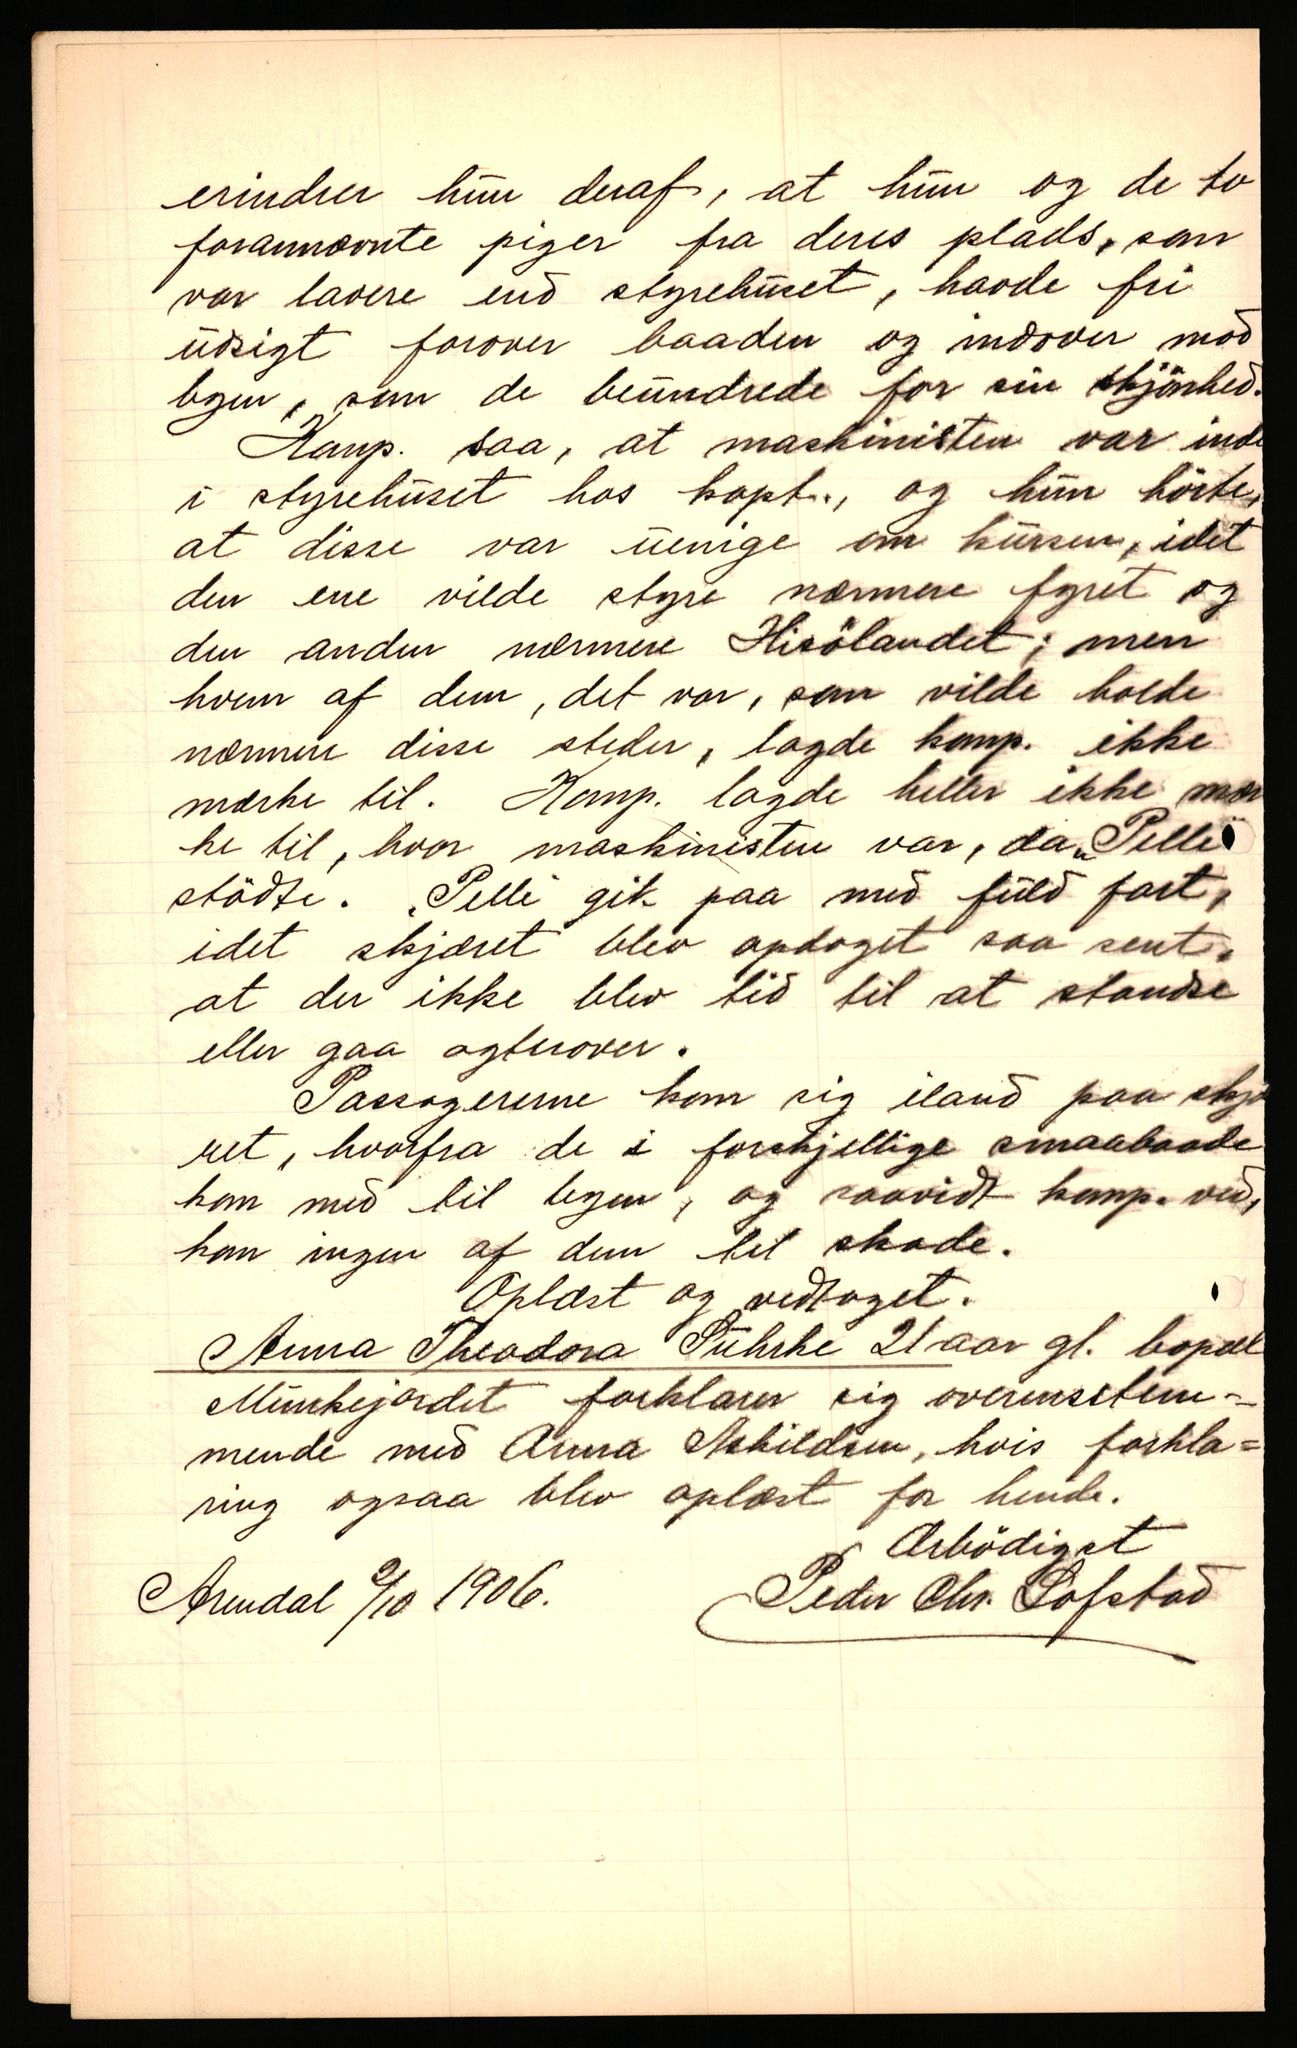 erindrer hun deraf, at hun og de to
forannævnte piger fra deres plads, som
var lavere end styrehuset, havde fri
udsigt forover baaden og indover mod
byen, som de beundrede for sin skjönhed.
Komp. saa, at maskinisten var inde
i styrehuset hos kapt., og hun hörte,
at disse var uenige om kursen, idet
den ene vilde styre nærmere fyret og
den anden nærmere Hisölandet; men
hvem af dem, det var, som vilde holde
nærmere disse steder, lagde komp. ikke
mærke til. Komp. lagde heller ikke mær
ke til, hvor maskinisten var, da "Pelle"
stödte. "Pelle" gik paa med fuld fart,
idet skjæret blev opdaget saa sent,
at der ikke blev tid til at standse
eller gaa agterover.
Passagererne kom sig iland paa skjæ
ret, hvorfra de i forskjellige smaabaade
kom ind til byen, og saavidt komp. ved,
kom ingen af dem til skade.
Oplæst og vedtaget.
Anna Theodora Suhrke 21 aar gl. bopæl
Munkejordet forklarer sig overensstem=
mende med Anna Askildsen, hvis forkla=
ring ogsaa blev oplæst for hende.
Ærbödigst
Arendal 9/10 1906. Peder Chr. Lofstad